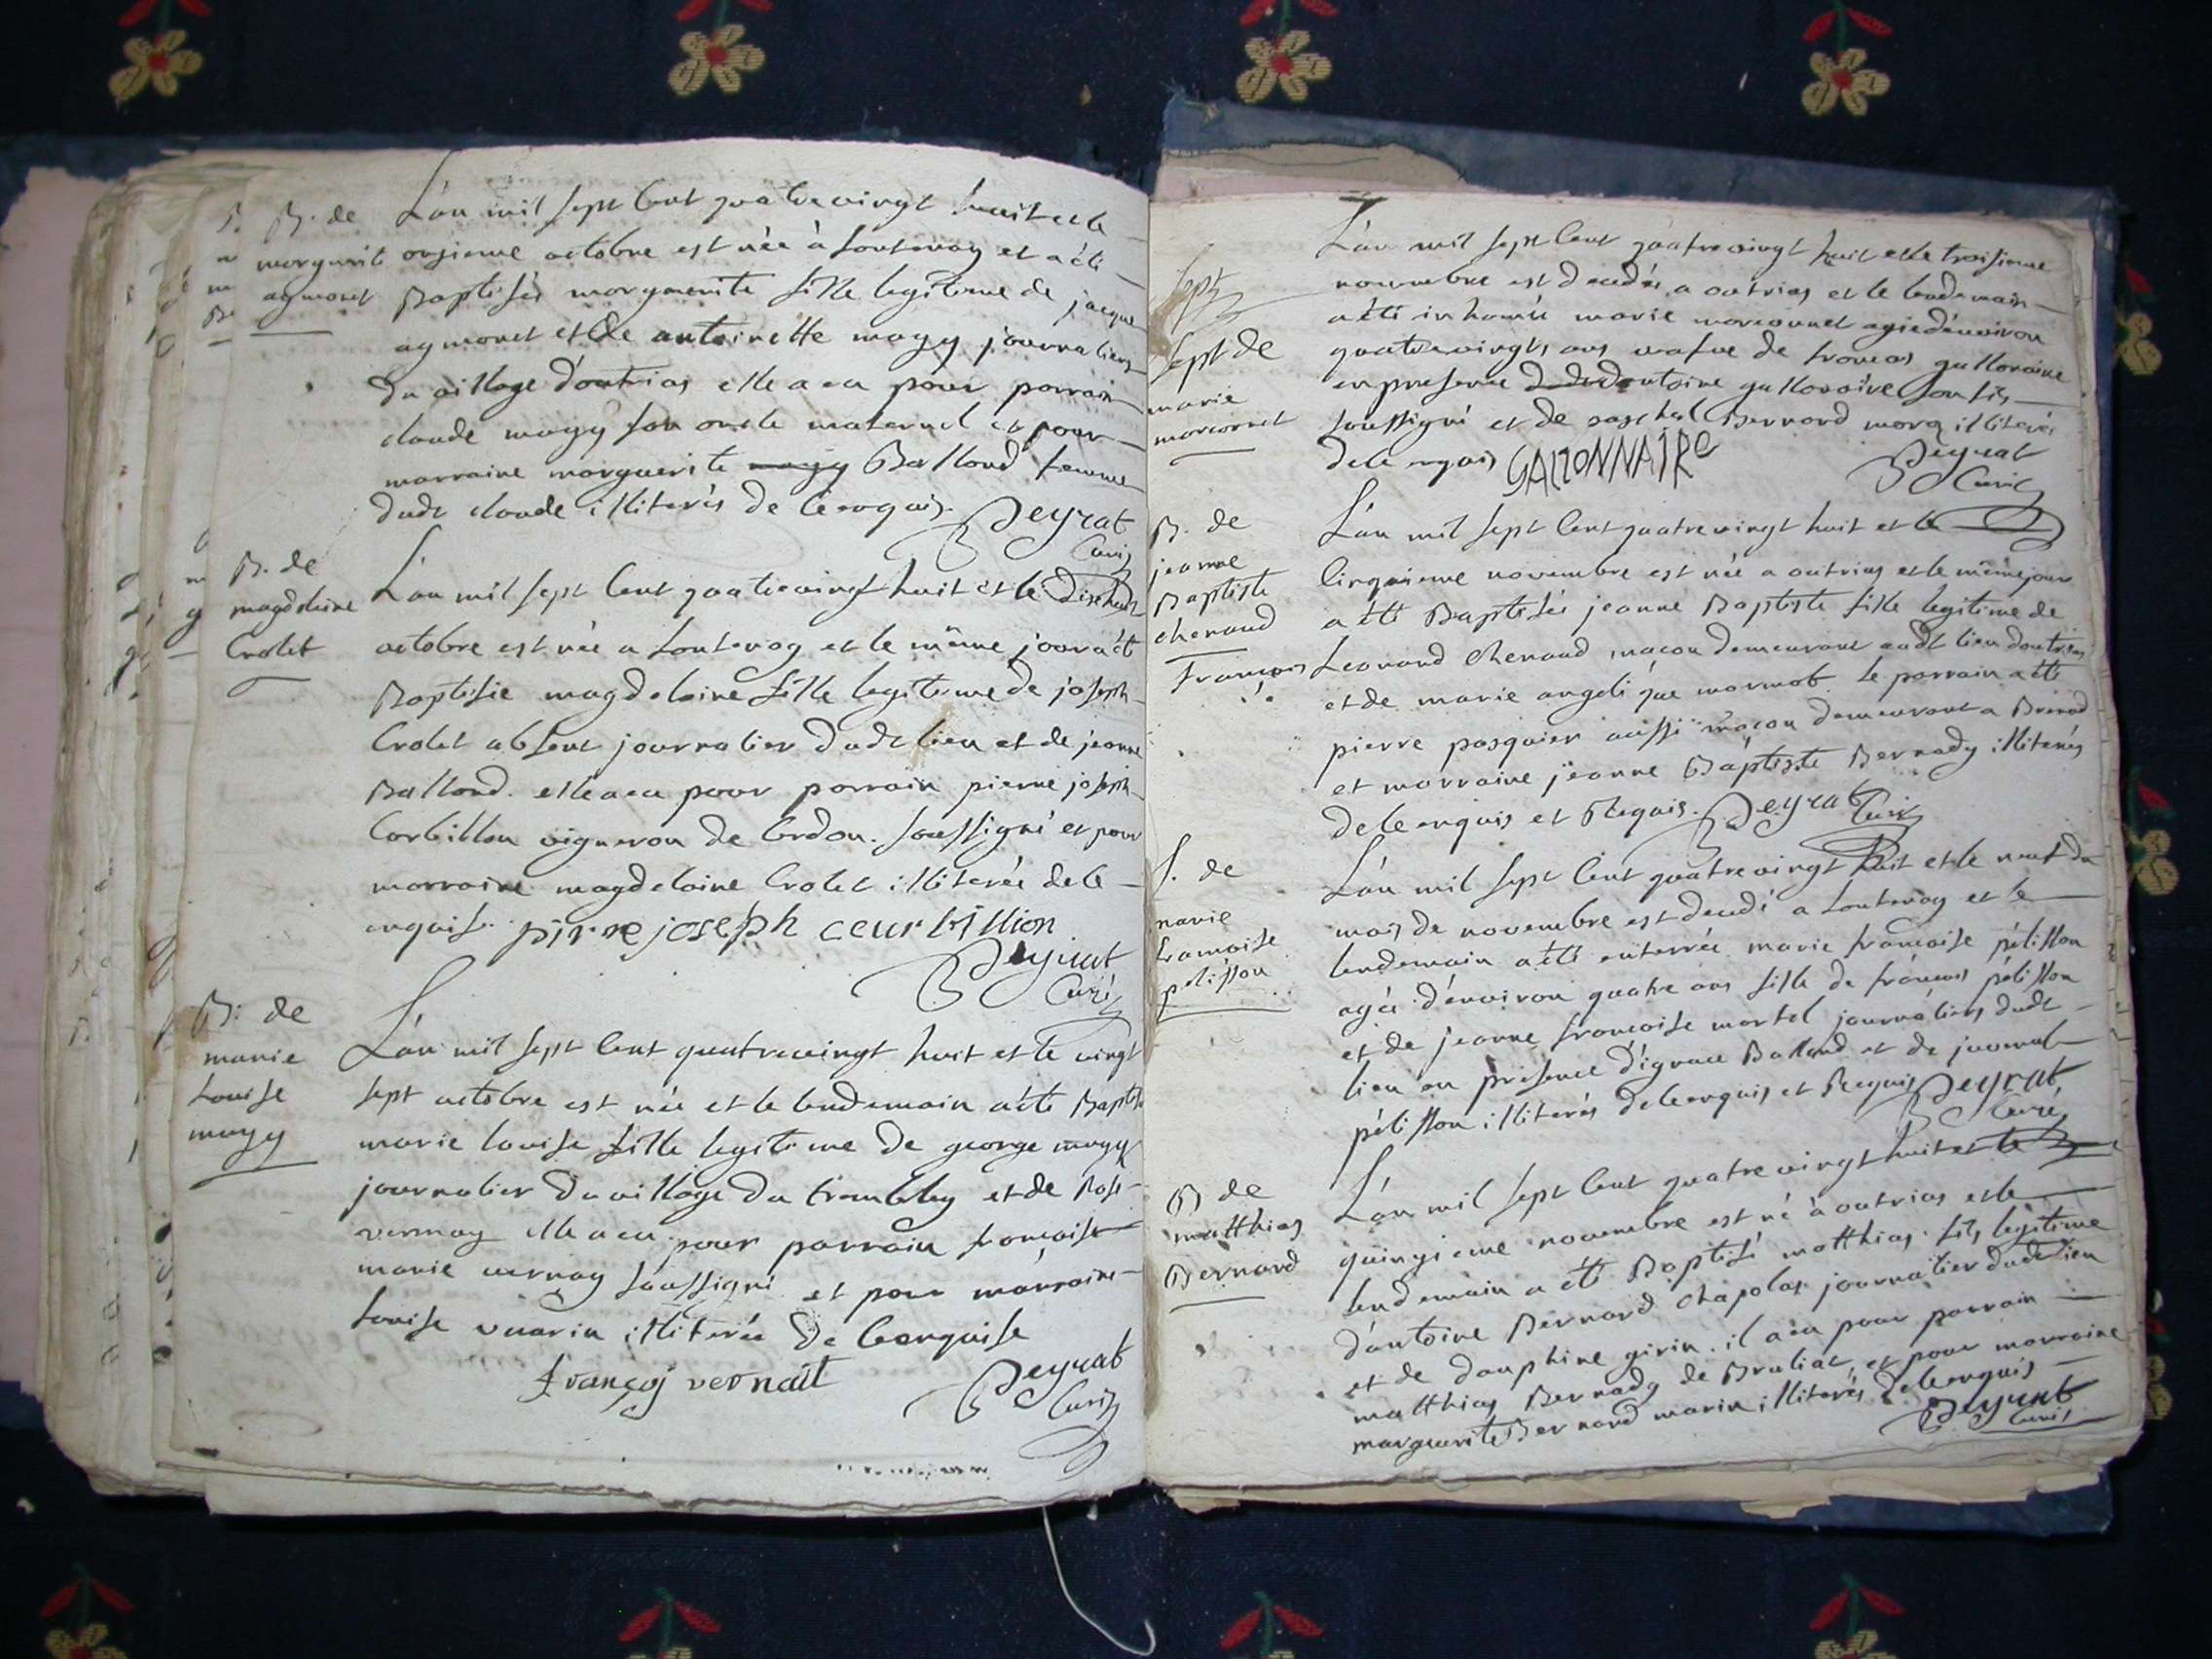 B. de
marguerite
aymonet
L'an mil sept cent quatrevingt huit et le
onzieme octobre est née à fontenay et a été
Baptisée marguerite fille legitime de jacque
aymonet et de antoinette magy journaliers
du village d'outrias elle a eu pour parrain
claude magy son oncle maternel et pour
marraine marguerite magy Balland femme
dudt claude illiterés de ce enquis.
Peyrat
Curé
B. de
magdeleine
Crolet
L'an mil sept cent quatrevingt huit et le dixhuit
octobre est née a fontenay et le même jour a été
Baptisée magdelaine fille legitime de joseph
Crolet absent journalier dudt lieu et de jeanne
Balland. elle a eu pour parrain pierre joseph
Corbillon vigneron de Cerdon. soussigné et pour
marraine magdelaine Crolet illiterée de ce
enquise. pirre joseph ceurbillion
Peyrat
Curé
B: de
marie
Louise
magy
L'an mil sept cent quatrevingt huit et le vingt
sept octobre est née et le lendemain a été Baptisé
marie louise fille legitime de george magy
journalier du village du tremblay et de Rose
vernay elle a eu pour parrain francoise
marie vernay soussigné et pour marraine
Louise vuarin illiterée de ce enquise
françoi vernait
Peyrat
Curé
sept
sept de
marie
marconnet
L'an mil sept cent quatrevingt huit et le troisieme
novembre est decedée a outrias et le lendemain
a été inhumée marie marconnet agée d'environ
quatrevingts ans veufve de francois galloraire
en presence d'antoine galloraire son fils
soussigné et de paschal Bernard illiteré
de ce enquis GALLONNAIRe
Peyrat
Curé
B. de
jeanne
Baptiste
chenaud
francois
L'an mil sept cent quatrevingt huit et le
cinquieme novembre est née a outrias et le même jour
a été Baptisée jeanne Baptiste fille legitime de
Leonard Chenaud maçon demeurant audt lieu d'outrias
et de marie angelique marmot. le parrain a été
pierre pasquier aussi maçon demeurant a Brenod
et marraine jeanne Baptiste Bernady illiterés
de ce enquis et Requis. Peyrat Curé
S. de
marie
francoise
pélisson
L'an mil sept cent quatrevingt huit et le neuf du
mois de novembre est decedé a fontenay et le
lendemain a été enterrée marie françoise pélisson
agée d'environ quatre ans fille de françois pélisson
et de jeanne françoise martel journaliers dudt
lieu en présence d'ignace Balland et de
pélisson illiterés de ce enquis et Requis Peyrat
Curé
B de
matthias
Bernard
L'an mil sept cent quatre vingt huit et le
quinzieme novembre est né à outrias et le
lendemain a été Baptisé matthias fils légitime
d'antoine Bernard chapolas journalier dudt lieu
et de dauphine girin. il a eu pour parrain
matthias Bernady de Bruliat, et pour marraine
marguerite Bernard marin illiterés de ce enquis
Peyrat
Curé